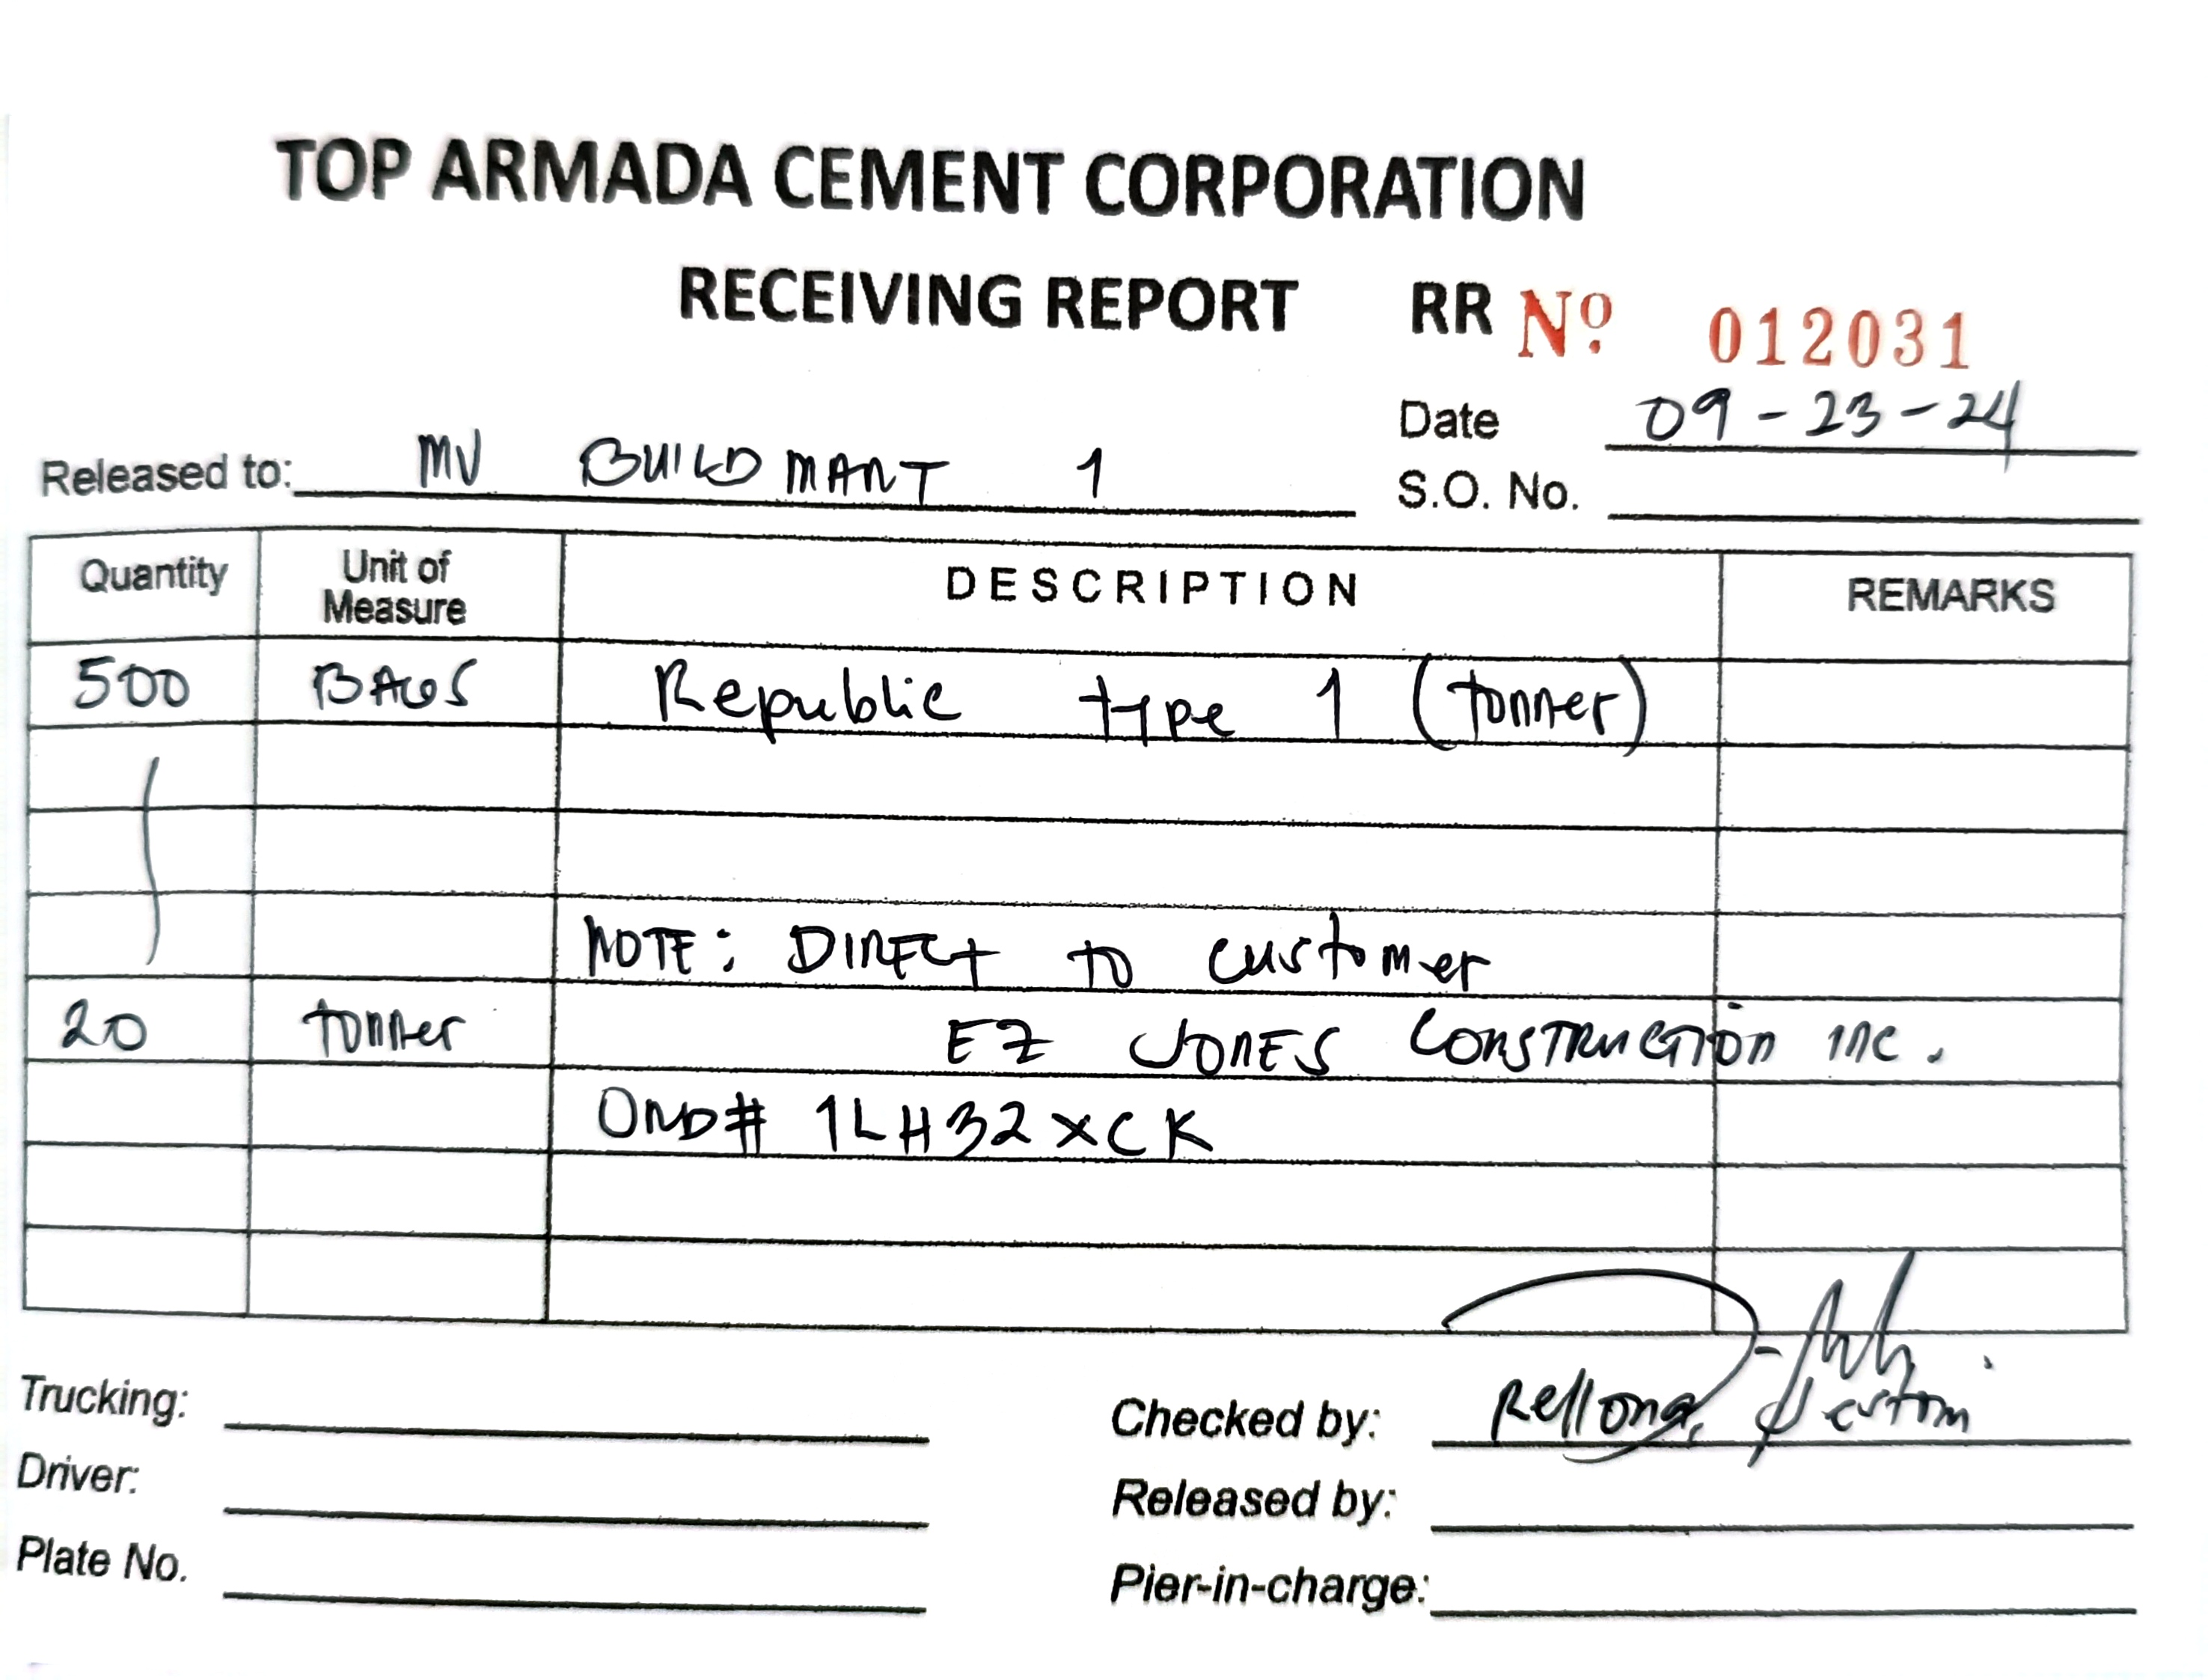 TOP ARMADA CEMENT CORPORATION
RECEIVING REPORT RR Nº 012031
Date 09-23-24
Released to: MV BUILDMART 1
S.O. No.
Quantity Unit of Measure DESCRIPTION REMARKS
500 BAGS Republic type 1 (tonner)
NOTE: DIRECT to customer
20 tonner EZ JONES CONSTRUCTION INC.
ORD# 1LH32XCK
Trucking:
Checked by: Rellona,
Driver:
Released by:
Plate No.
Pier-in-charge: